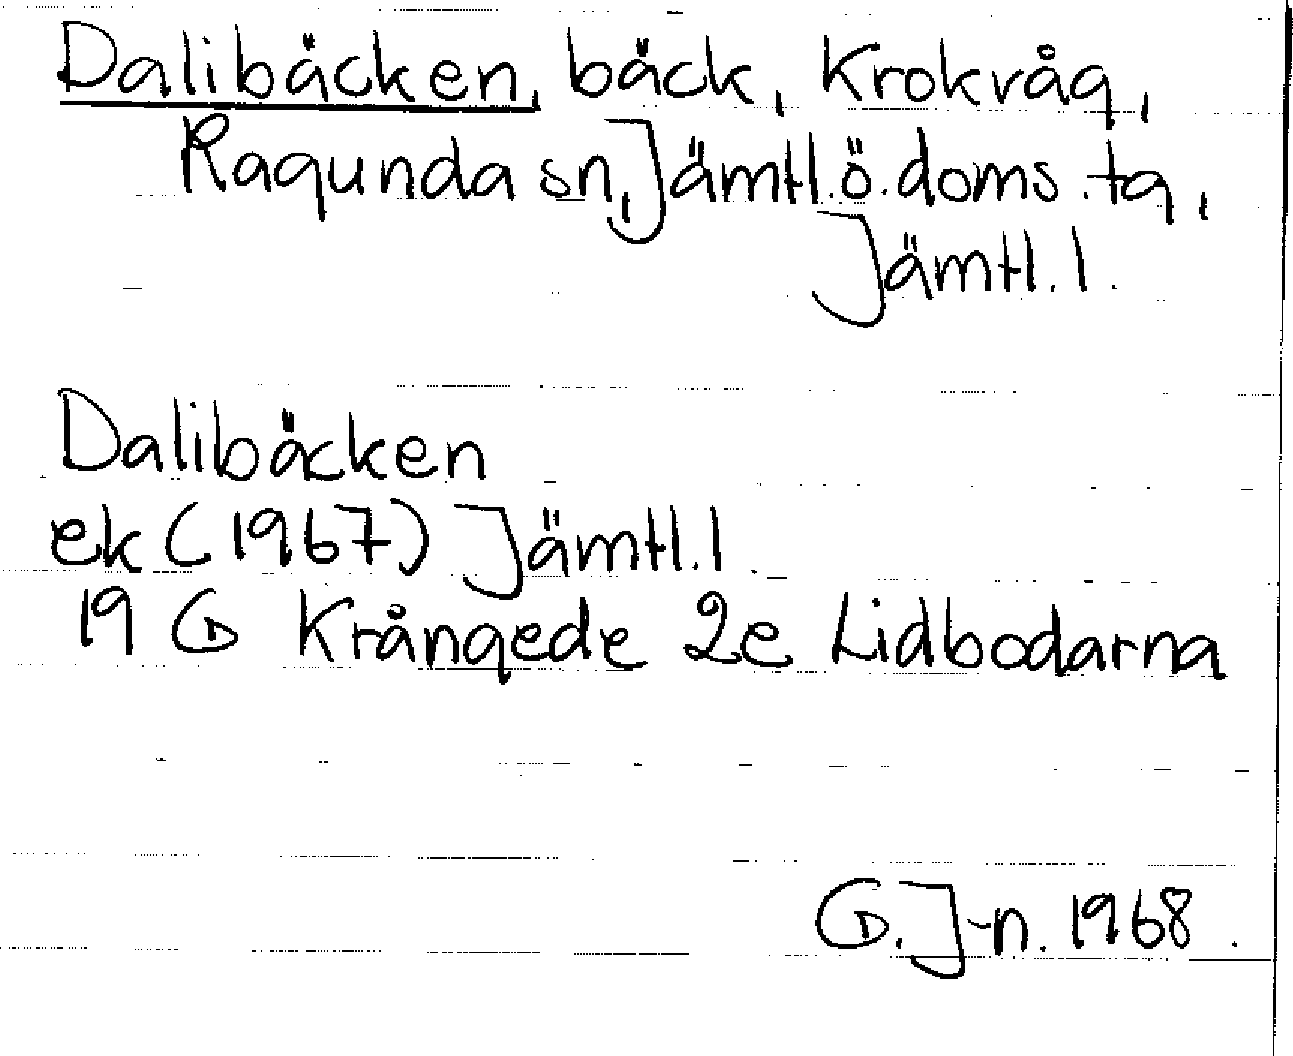 Dalibäcken, bäck, Krokvåg,
Ragunda sn, Jämtl. ö. doms. tg,
Jämtl. l.
Dalibäcken
ek (1967) Jämtl. l
19 G Krångede 2e Lidbodarna
G. J-n. 1968.